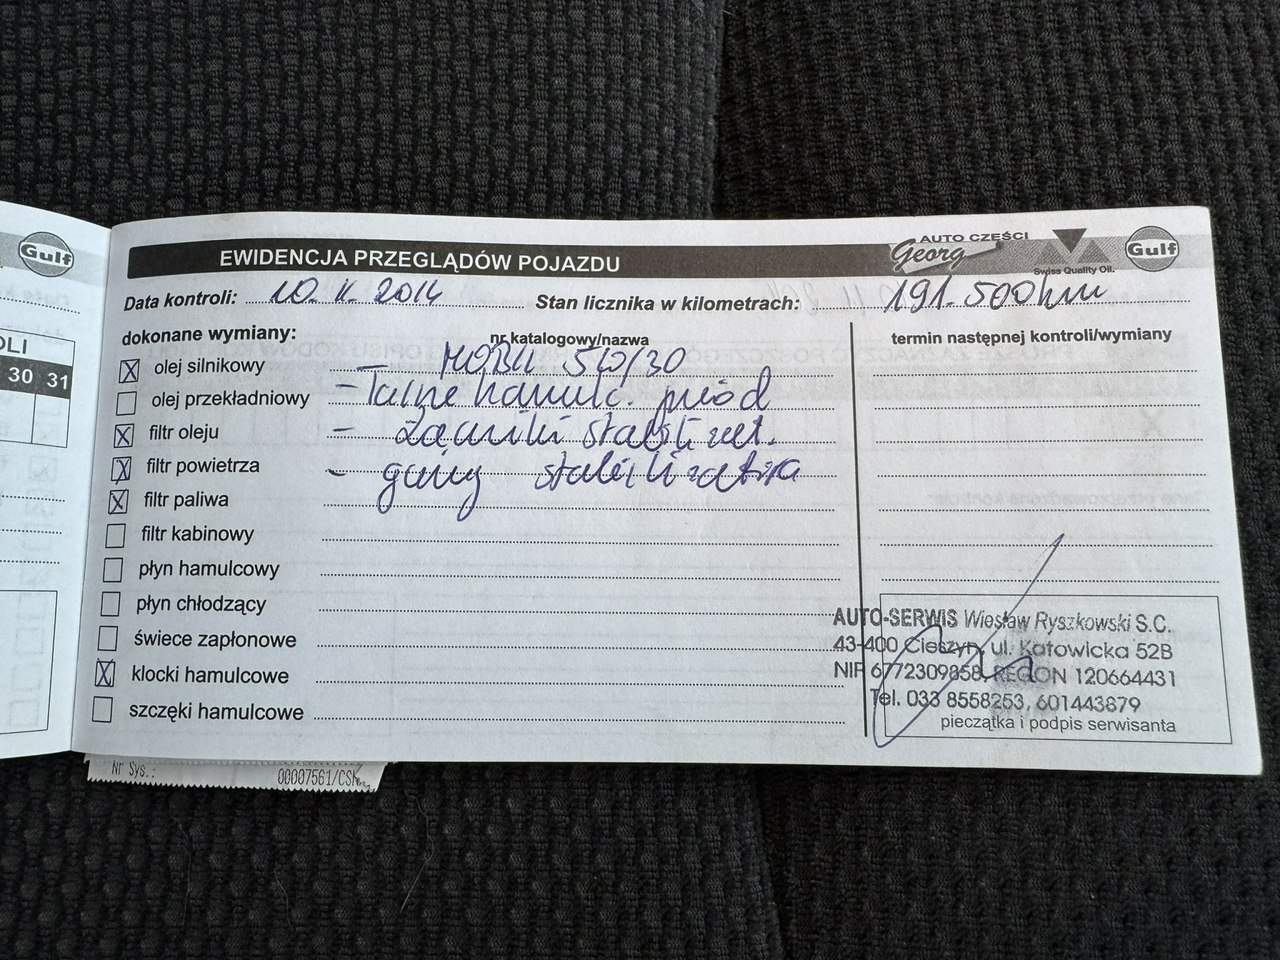 Gulf
EWIDENCJA PRZEGLĄDÓW POJAZDU
AUTO CZĘŚCI
Georg
Swiss Quality Oil.
Gulf
Data kontroli: 10. 11. 2014
Stan licznika w kilometrach: 191.500 km
OLI
30 31
dokonane wymiany:
nr katalogowy/nazwa
termin następnej kontroli/wymiany
olej silnikowy - MOBIL 5W/30
olej przekładniowy - Tarcze hamulc. przód
filtr oleju - Łączniki stabilizat.
filtr powietrza - gumy stabilizatora
filtr paliwa
filtr kabinowy
płyn hamulcowy
płyn chłodzący
świece zapłonowe
klocki hamulcowe
szczęki hamulcowe
AUTO-SERWIS Wiesław Ryszkowski S.C.
43-400 Cieszyn, ul. Katowicka 52B
NIP 6772309858, REGON 120664431
Tel. 033 8558253, 601443879
pieczątka i podpis serwisanta
Nr Sys.: 00007561/CSK